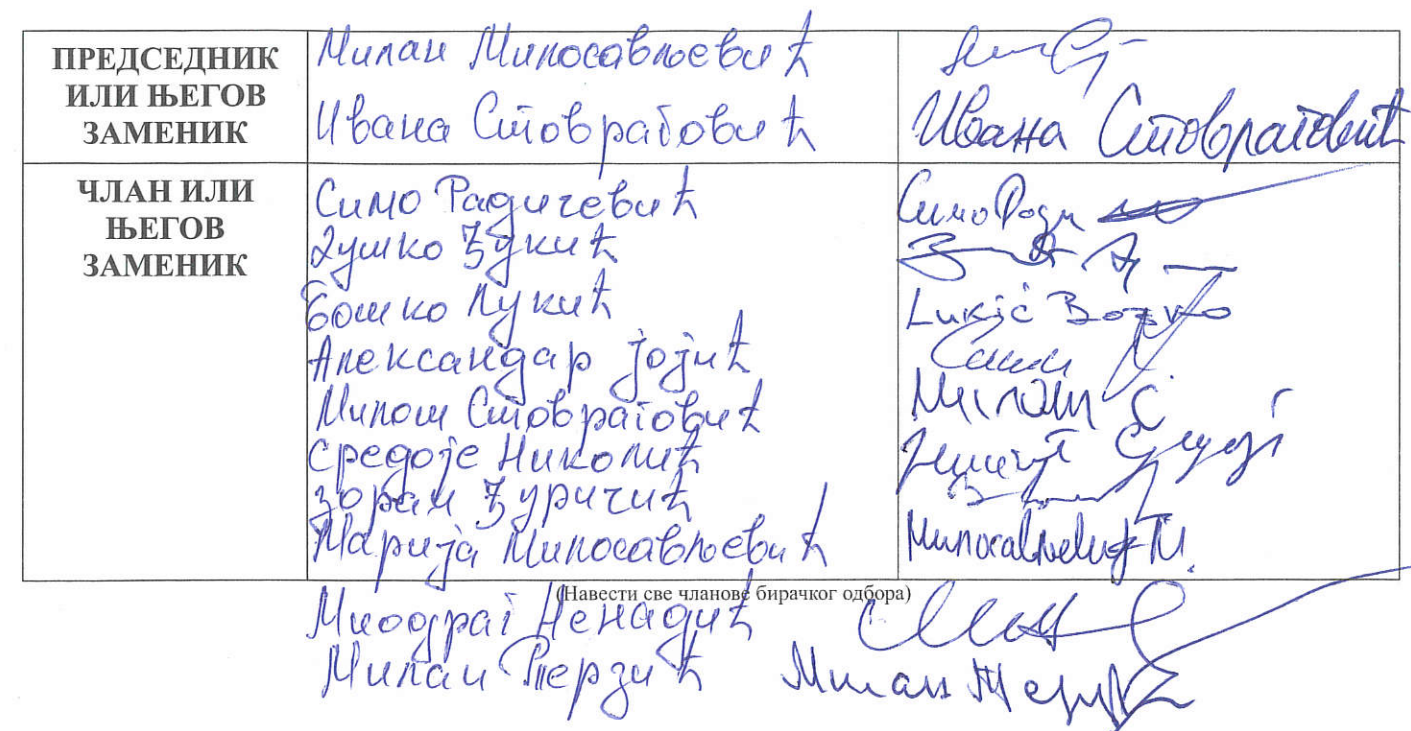 ПРЕДСЕДНИК ИЛИ ЊЕГОВ ЗАМЕНИК
Милан Милосављевић
Ивана Стовраговић Ивана Стовраговић
ЧЛАН ИЛИ ЊЕГОВ ЗАМЕНИК
Симо Радичевић Симо
Душко Ђукић
Бошко Лукић Lukić Boško
Александар Јојић
Милош Стовраговић Милош С
Средоје Николић
Зоран Ђуричић
Марија Милосављевић Милосављевић М.
(Навести све чланове бирачког одбора)
Миодраг Ненадић
Милан Терзић Милан Терзић